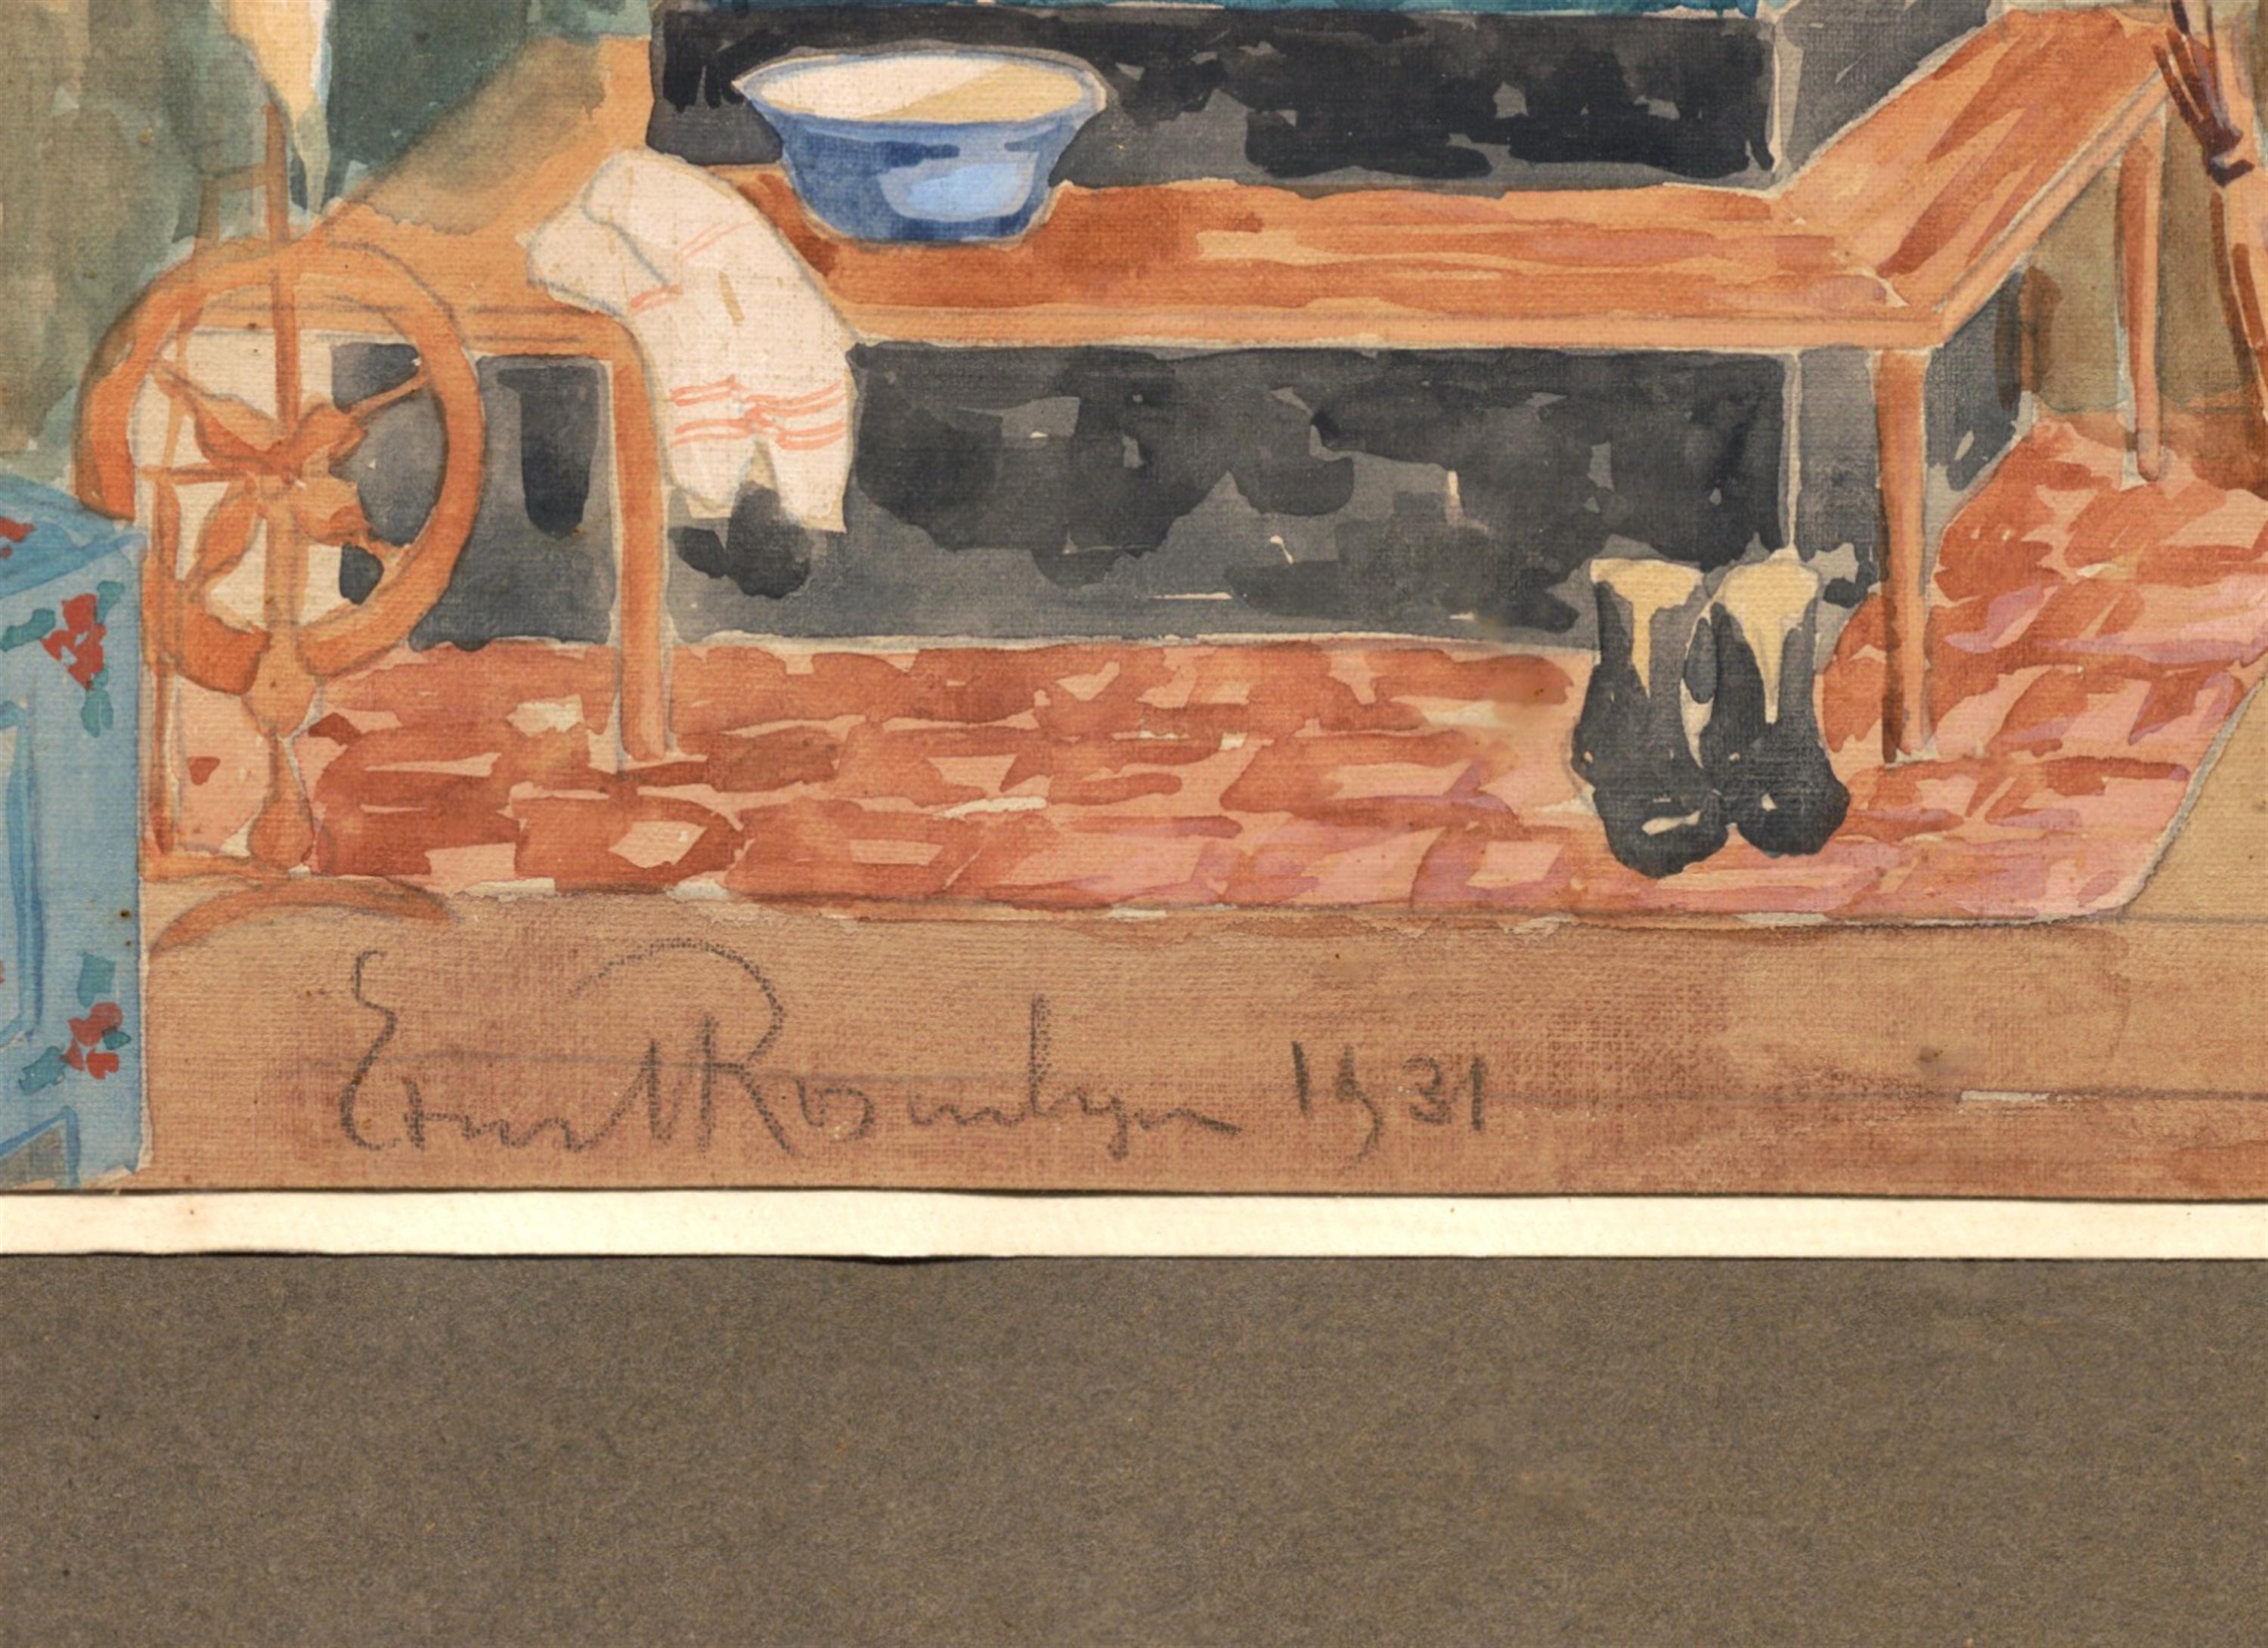 Ernst Rosenhagen 1931